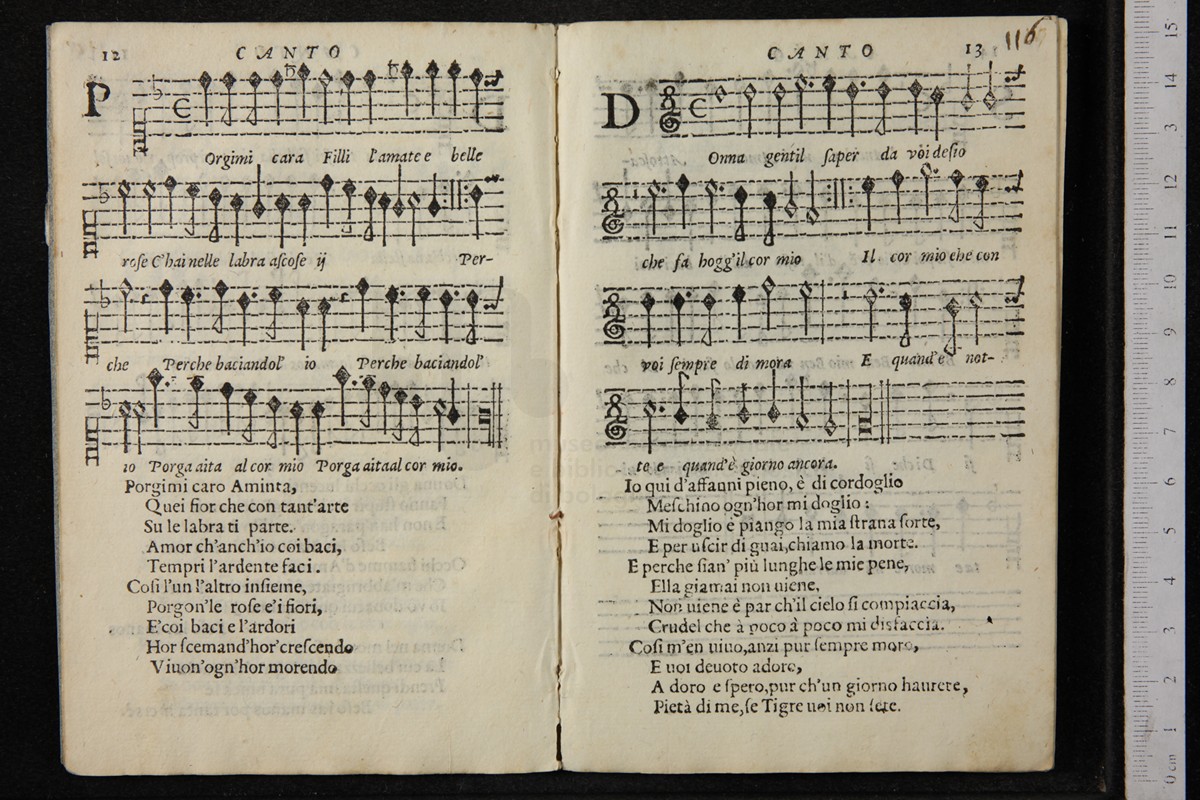 12 CANTO
P
Orgimi cara Filli l'amate e belle
rose C'hai nelle labra ascose ij Per-
che Perche baciandol' io Perche baciandol'
io Porga aita al cor mio Porga aita al cor mio.
Porgimi caro Aminta,
Quei fior che con tant'arte
Su le labra ti parte.
Amor ch'anch'io coi baci,
Tempri l'ardente faci.
Cosi l'un l'altro insieme,
Porgon'le rose e'i fiori,
E'coi baci e l'ardori
Hor scemand'hor'crescendo
Viuon'ogn'hor morendo
CANTO 13
116
D
Onna gentil saper da voi desio
che fa hogg'il cor mio Il cor mio che con
voi sempre di mora E quand'è not-
te e quand'è giorno ancora.
Io qui d'affanni pieno, è di cordoglio
Meschino ogn'hor mi doglio:
Mi doglio è piango la mia strana sorte,
E per uscir di guai,chiamo la morte.
E perche sian' più lunghe le mie pene,
Ella giamai non uiene,
Non uiene è par ch'il cielo si compiaccia,
Crudel che à poco à poco mi disfaccia.
Cosi m'en uiuo,anzi pur sempre moro,
E uoi deuoto adoro,
A doro e spero,pur ch'un giorno haurete,
Pietà di me,se Tigre uoi non sete.